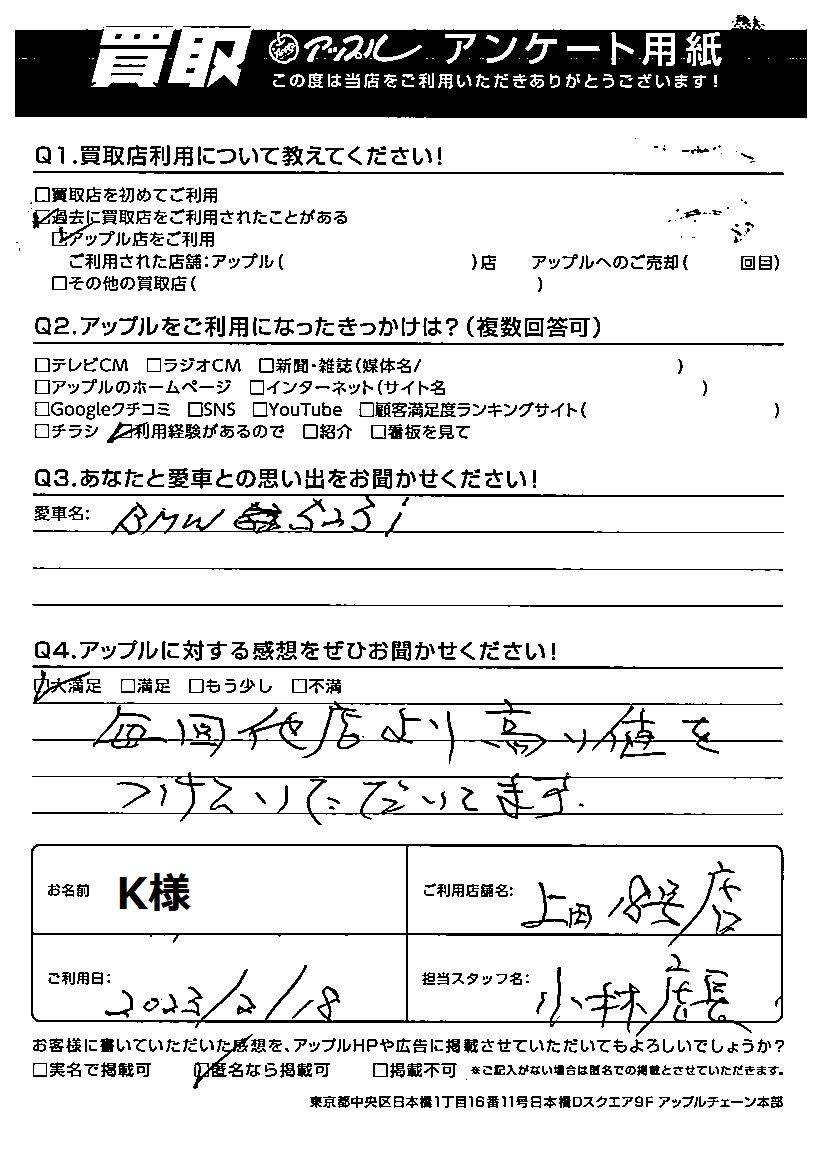 買取 アップル アンケート用紙
この度は当店をご利用いただきありがとうございます!
Q1.買取店利用について教えてください!
□買取店を初めてご利用
☑過去に買取店をご利用されたことがある
☑アップル店をご利用
ご利用された店舗:アップル( )店 アップルへのご売却( 回目)
□その他の買取店( )
Q2.アップルをご利用になったきっかけは?(複数回答可)
□テレビCM □ラジオCM □新聞・雑誌(媒体名/ )
□アップルのホームページ □インターネット(サイト名 )
□Googleクチコミ □SNS □YouTube □顧客満足度ランキングサイト( )
□チラシ ☑利用経験があるので □紹介 □看板を見て
Q3.あなたと愛車との思い出をお聞かせください!
愛車名: BMW 523i
Q4.アップルに対する感想をぜひお聞かせください!
☑大満足 □満足 □もう少し □不満
毎回他店より高い値を
つけていただいてます.
お名前 K様 ご利用店舗名: 上田18号店
ご利用日: 2023/2/18 担当スタッフ名: 小林店長
お客様に書いていただいた感想を、アップルHPや広告に掲載させていただいてもよろしいでしょうか?
□実名で掲載可 ☑匿名なら掲載可 □掲載不可 ※ご記入がない場合は匿名での掲載とさせていただきます。
東京都中央区日本橋1丁目16番11号日本橋Dスクエア9F アップルチェーン本部